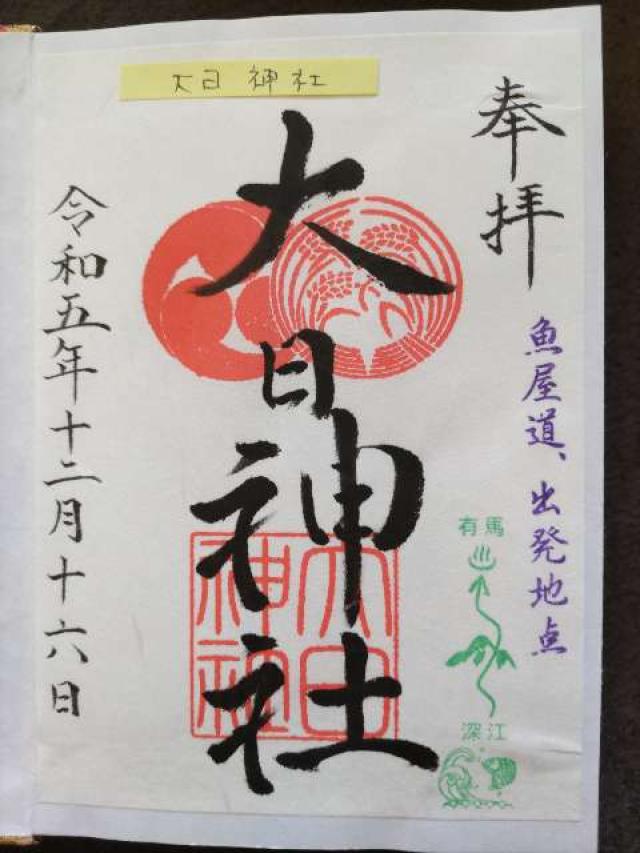 大日神社
奉拝
魚屋道、出発地点
有馬
深江
大日神社
大日神社
令和五年十二月十六日